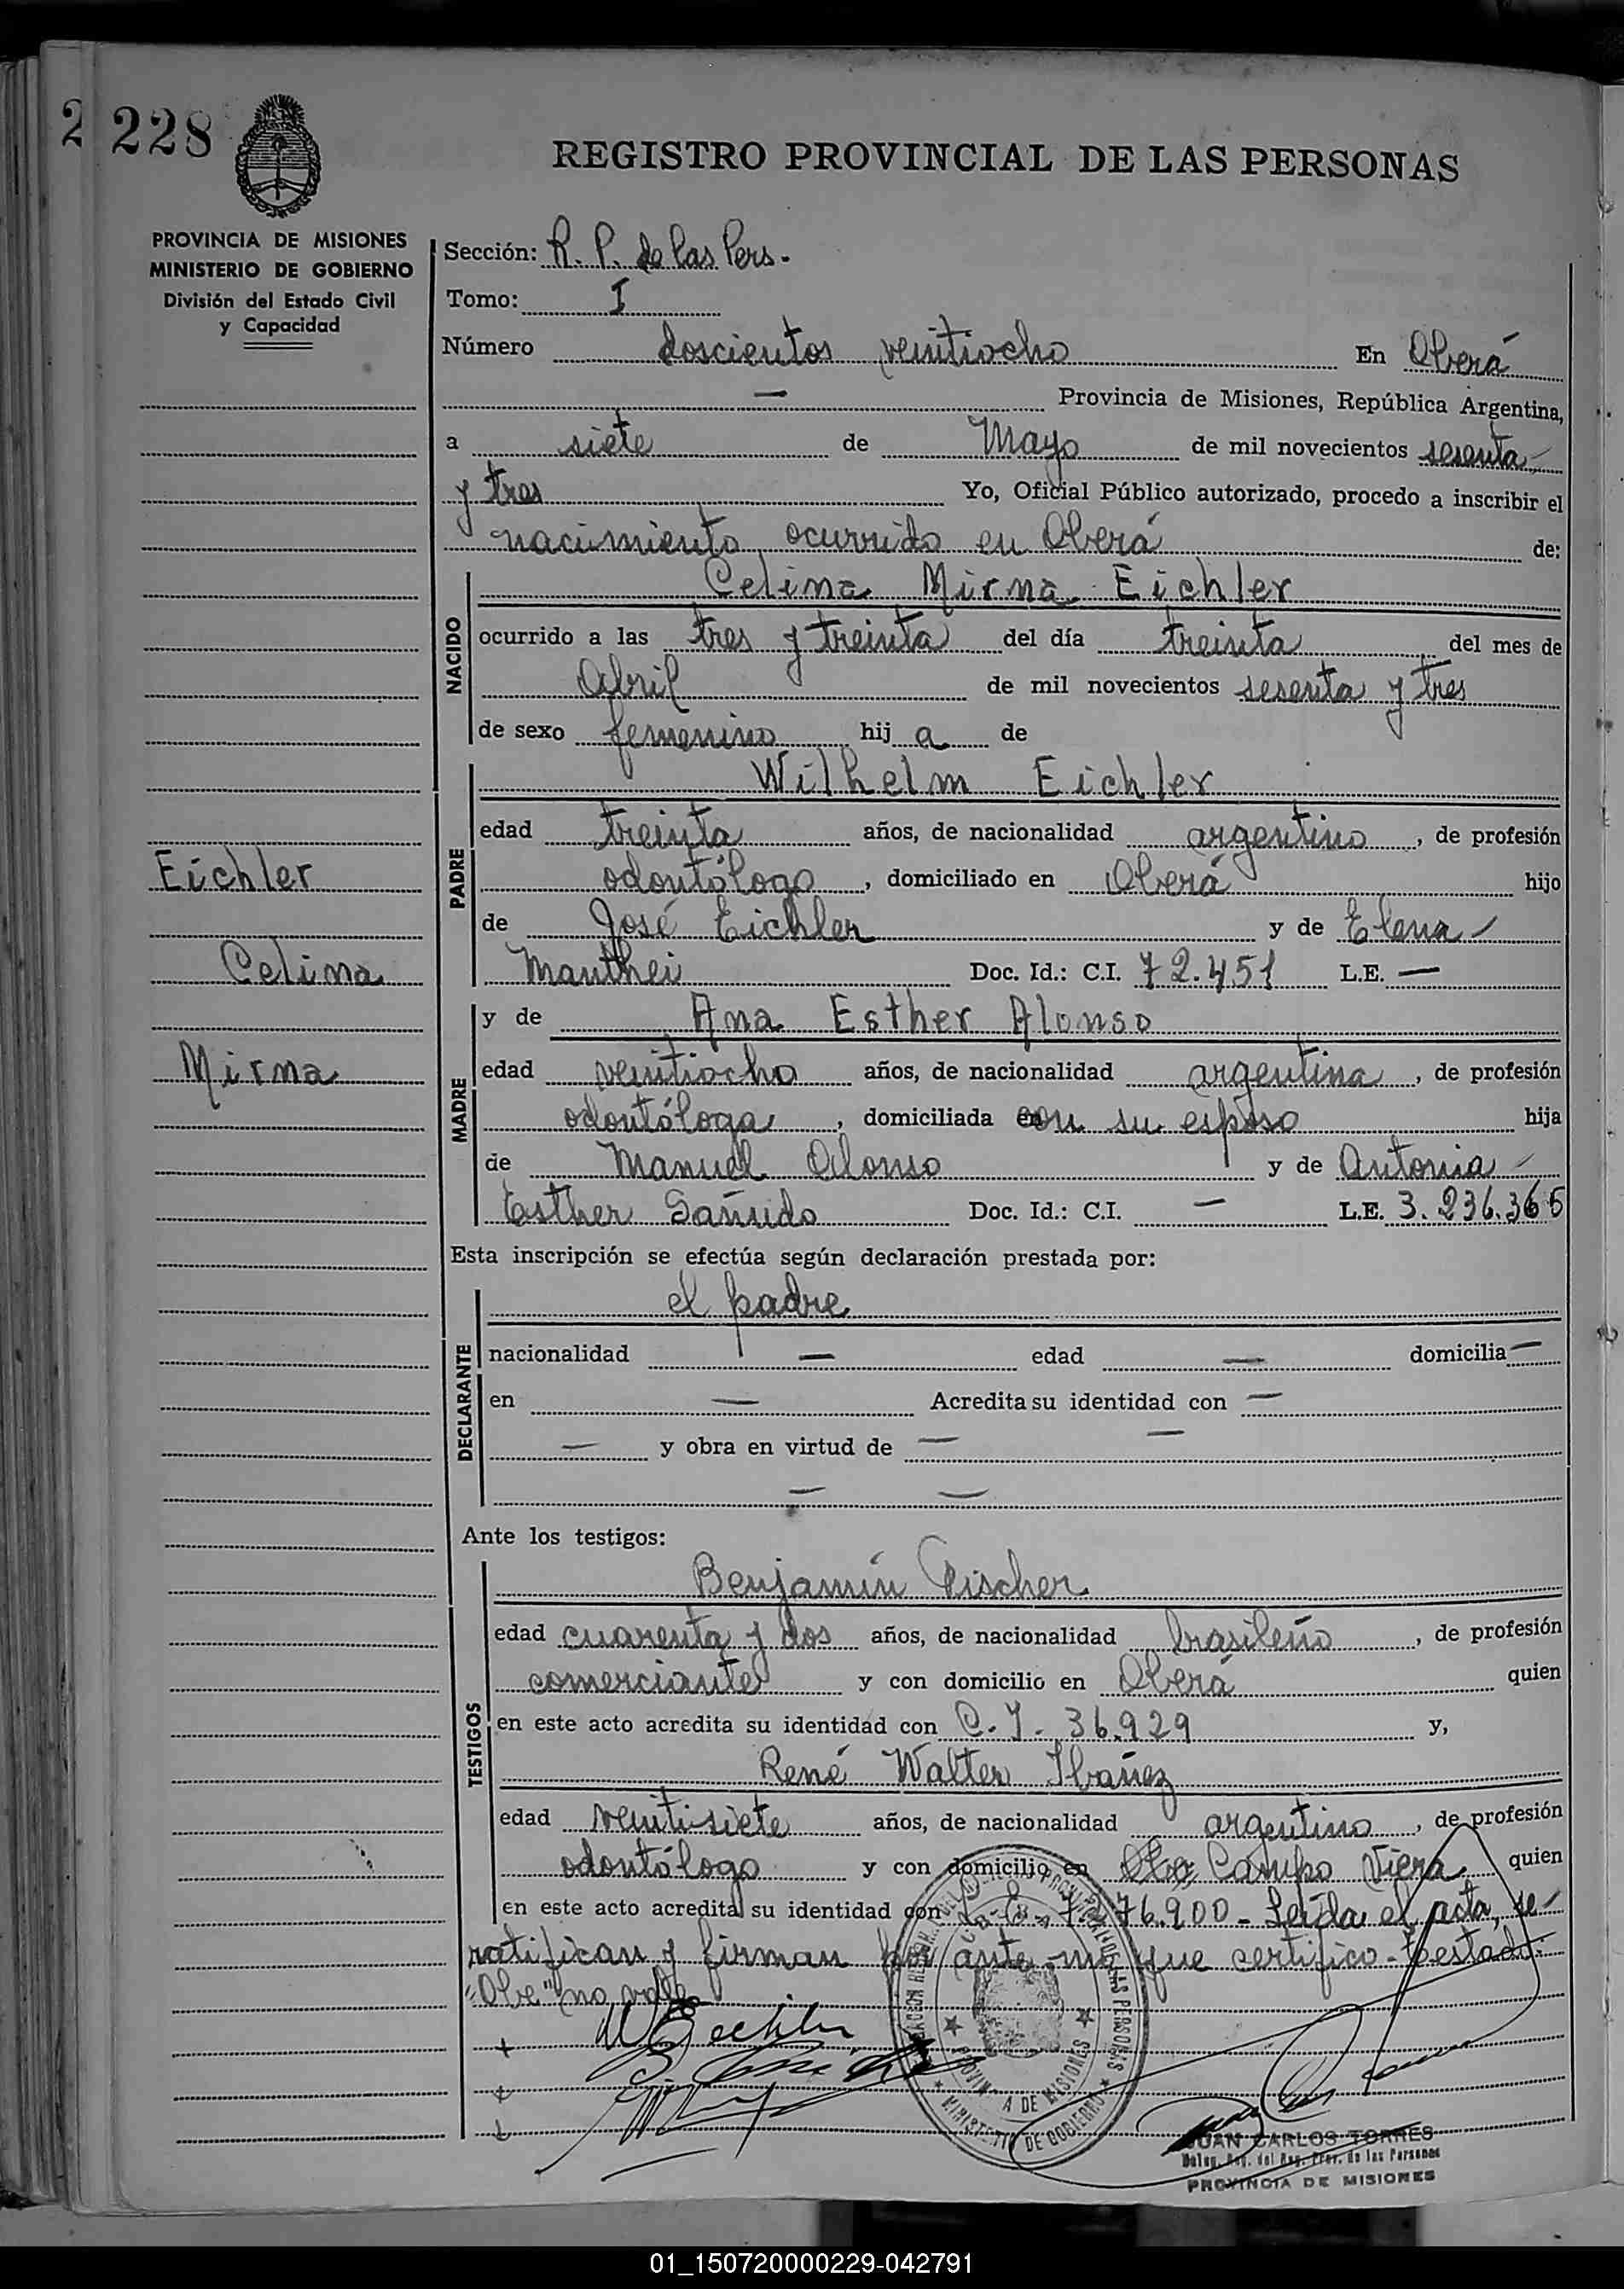 2 228
REGISTRO PROVINCIAL DE LAS PERSONAS
PROVINCIA DE MISIONES
MINISTERIO DE GOBIERNO
División del Estado Civil
y Capacidad
Sección: R. P. de las Pers.
Tomo: I
Número doscientos veintiocho En Oberá
— Provincia de Misiones, República Argentina,
a siete de Mayo de mil novecientos sesenta
y tres Yo, Oficial Público autorizado, procedo a inscribir el
nacimiento ocurrido en Oberá de:
NACIDO
Celina Mirna Eichler
ocurrido a las tres y treinta del día treinta del mes de
Abril de mil novecientos sesenta y tres
de sexo femenino hij a de
PADRE
Wilhelm Eichler
edad treinta años, de nacionalidad argentino, de profesión
odontólogo, domiciliado en Oberá hijo
de José Eichler y de Elena
Manthei Doc. Id.: C.I. 72.451 L.E. —
Eichler
Celina
Mirna
MADRE
y de Ana Esther Alonso
edad veintiocho años, de nacionalidad argentina, de profesión
odontóloga, domiciliada con su esposo hija
de Manuel Alonso y de Antonia
Esther Sañudo Doc. Id.: C.I. — L.E. 3.236.365
Esta inscripción se efectúa según declaración prestada por:
DECLARANTE
el padre
nacionalidad — edad — domicilia —
en — Acredita su identidad con —
— y obra en virtud de — —
— —
Ante los testigos:
TESTIGOS
Benjamín Fischer
edad cuarenta y dos años, de nacionalidad brasileño, de profesión
comerciante y con domicilio en Oberá quien
en este acto acredita su identidad con C.I. 36.929 y,
René Walter Ibáñez
edad veintisiete años, de nacionalidad argentino, de profesión
odontólogo y con domicilio en Obe Campo Viera quien
en este acto acredita su identidad con 76.900 - Leída el acta, se
ratifican y firman por ante mí que certifico - Testado:
"Obe" no vale
W Eichler
PROVINCIA DE MISIONES
MINISTERIO DE GOBIERNO
JUAN CARLOS TORRES
Deleg. Reg. del Reg. Prov. de las Personas
PROVINCIA DE MISIONES
01_150720000229-042791